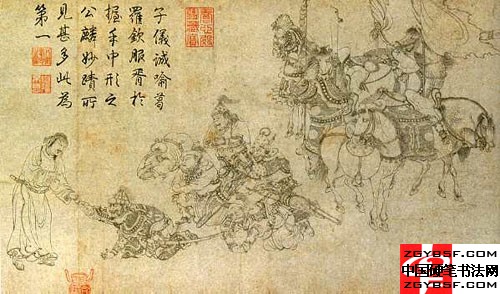 子儀誠喻葛
羅欽服胥於
握手中形之
公麟妙蹟所
見甚多此為
第一
ZGYBSF.COM
中国硬笔书法网
ZGYBSF.COM